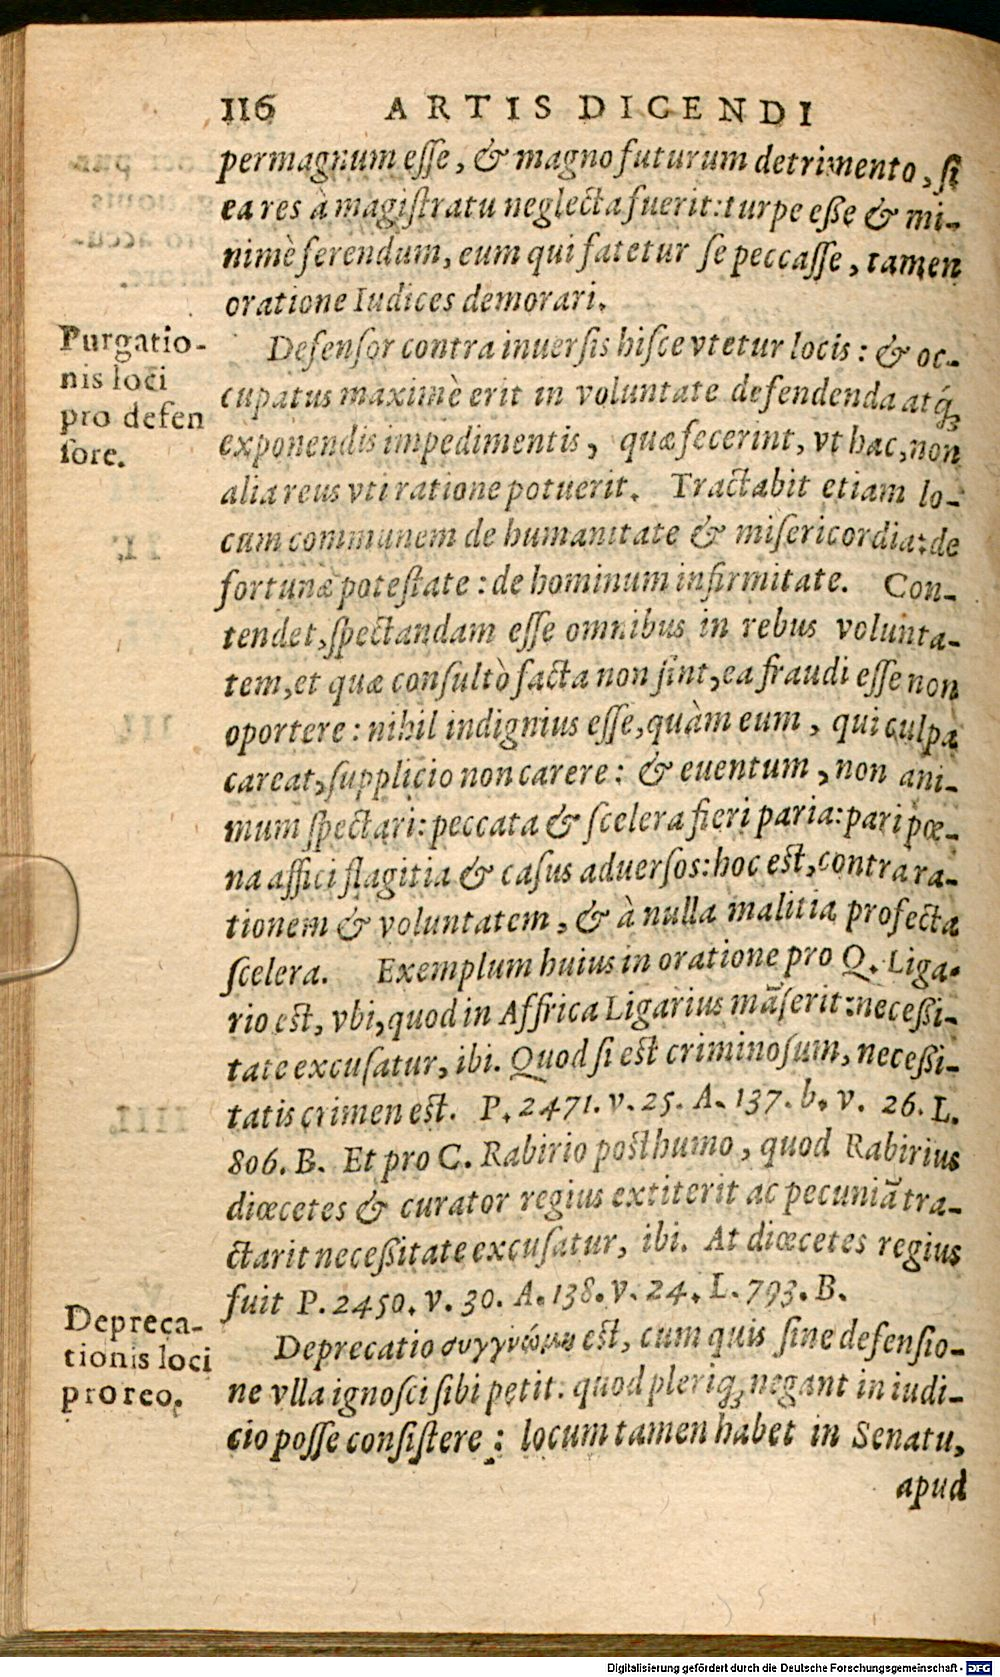 116 ARTIS DICENDI
permagnum esse, & magno futurum detrimento, si
ea res à magistratu neglecta fuerit: turpe eße & mi-
nimè ferendum, eum qui fatetur se peccasse, tamen
oratione Iudices demorari.
Purgatio-
nis loci
pro defen
sore.
Defensor contra inuersis hisce vtetur locis: & oc-
cupatus maximè erit in voluntate defendenda atq́;
exponendis impedimentis, quæ fecerint, vt hac, non
alia reus vti ratione potuerit. Tractabit etiam lo-
cum communem de humanitate & misericordia: de
fortunæ potestate: de hominum infirmitate. Con-
tendet, spectandam esse omnibus in rebus volunta-
tem, et quæ consultò facta non sint, ea fraudi esse non
oportere: nihil indignius esse, quàm eum, qui culpa
careat, supplicio non carere: & euentum, non ani-
mum spectari: peccata & scelera fieri paria: pari pœ-
na affici flagitia & casus aduersos: hoc est, contra ra-
tionem & voluntatem, & à nulla malitia profecta
scelera. Exemplum huius in oratione pro Q. Liga-
rio est, vbi, quod in Affrica Ligarius mãserit: neceßi-
tate excusatur, ibi. Quod si est criminosum, neceßi-
tatis crimen est. P. 2471. v. 25. A. 137. b. v. 26. L.
806. B. Et pro C. Rabirio posthumo, quod Rabirius
diœcetes & curator regius extiterit ac pecuniã tra-
ctarit neceßitate excusatur, ibi. At diœcetes regius
fuit P. 2450. v. 30. A. 138. v. 24. L. 793. B.
Depreca-
tionis loci
pro reo.
Deprecatio συγγνώμη est, cum quis sine defensio-
ne vlla ignosci sibi petit: quod pleriq; negant in iudi-
cio posse consistere: locum tamen habet in Senatu,
apud
Digitalisierung gefördert durch die Deutsche Forschungsgemeinschaft - DFG